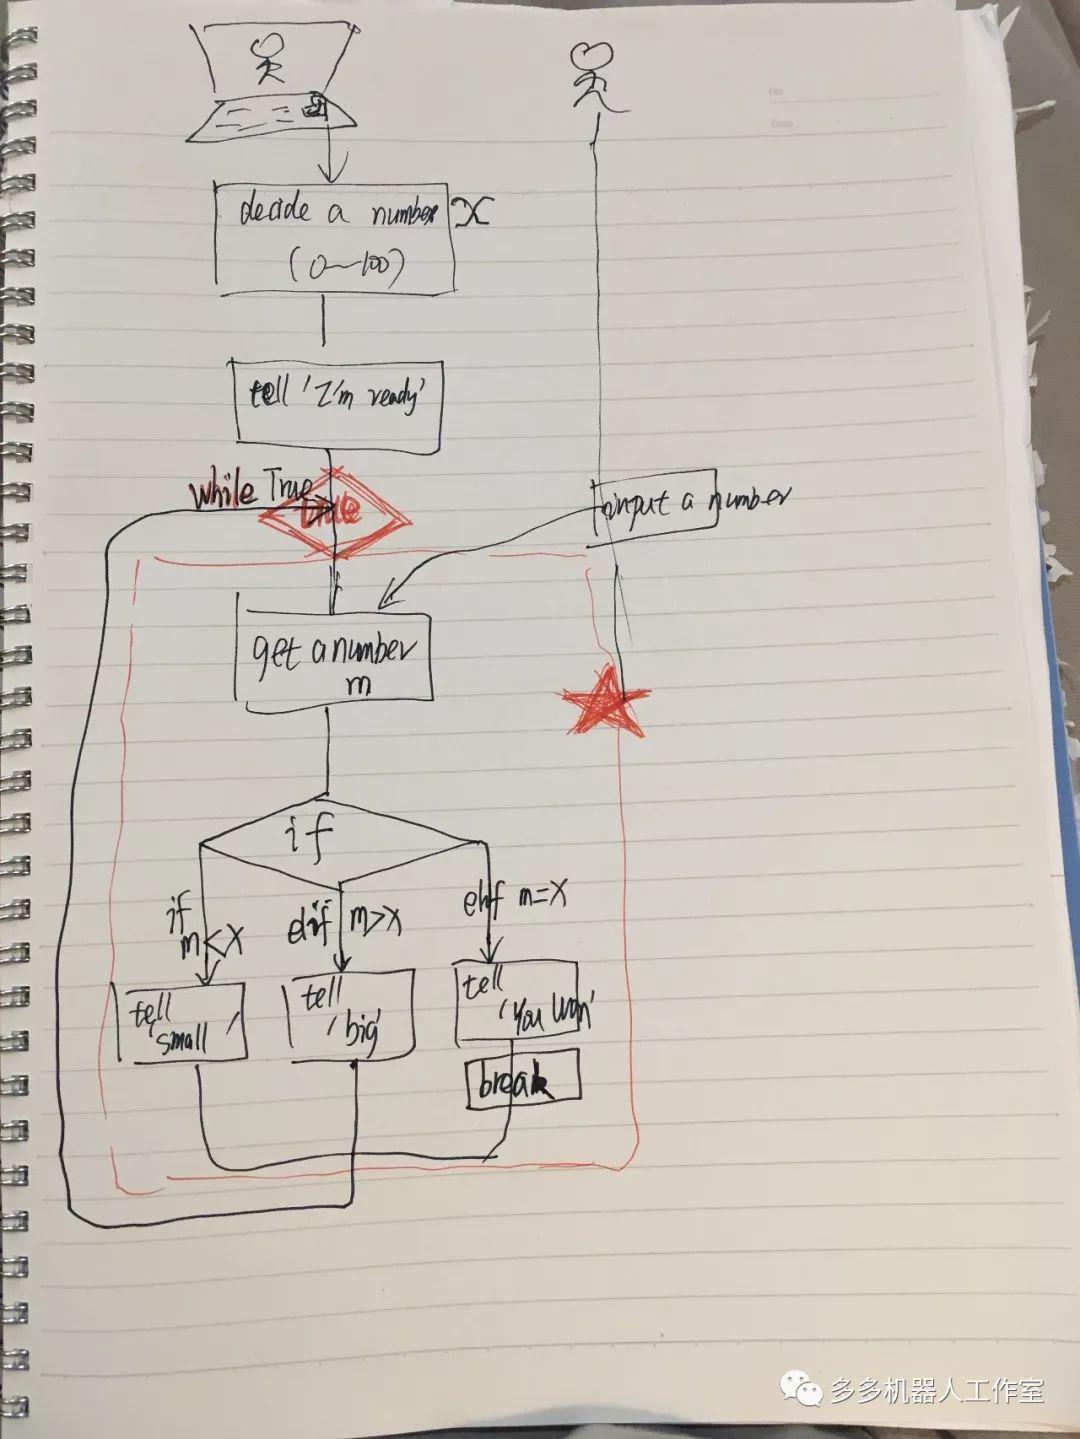 decide a number X
(0~100)
tell 'I'm ready'
while True
true
input a number
get a number
m
if
if
m<X
elif m>X
elif m=X
tell
'small'
tell
'big'
tell
'You Win'
break
No.
Date
多多机器人工作室